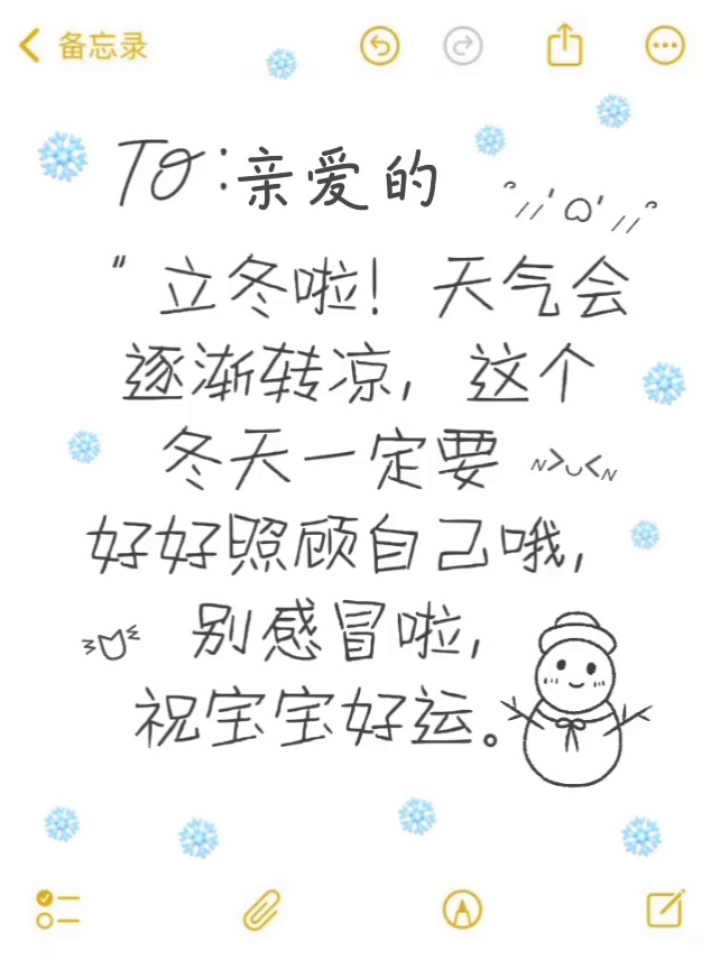 备忘录
TO:亲爱的
"立冬啦! 天气会
逐渐转凉, 这个
冬天一定要
好好照顾自己哦,
别感冒啦,
祝宝宝好运。